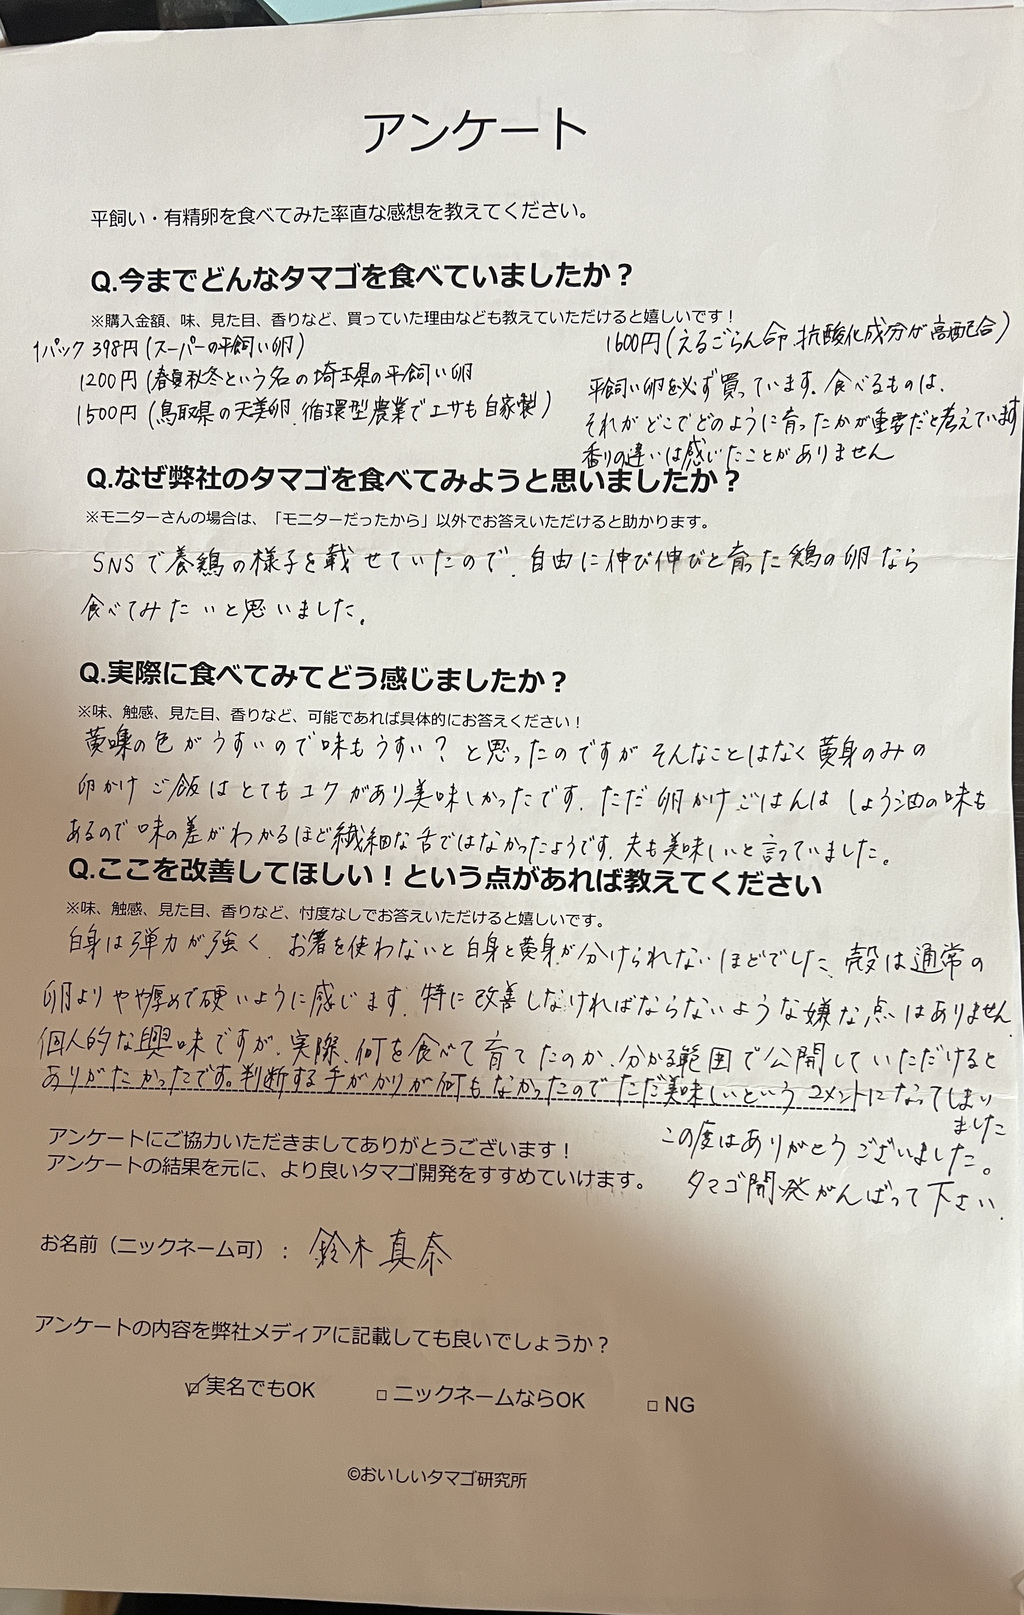 アンケート
平飼い・有精卵を食べてみた率直な感想を教えてください。
Q.今までどんなタマゴを食べていましたか？
※購入金額、味、見た目、香りなど、買っていた理由なども教えていただけると嬉しいです！
1パック 398円(スーパーの平飼い卵)
1200円(春夏秋冬という名の埼玉県の平飼い卵
1500円(鳥取県の天美卵、循環型農業でエサも自家製)
1600円(えるごらん命、抗酸化成分が高配合)
平飼い卵を必ず買っています。食べるものは、
それがどこでどのように育ったかが重要だと考えています
香りの違いは感じたことがありません
Q.なぜ弊社のタマゴを食べてみようと思いましたか？
※モニターさんの場合は、「モニターだったから」以外でお答えいただけると助かります。
SNSで養鶏の様子を載せていたので、自由に伸び伸びと育った鶏の卵なら
食べてみたいと思いました。
Q.実際に食べてみてどう感じましたか？
※味、触感、見た目、香りなど、可能であれば具体的にお答えください！
黄味の色がうすいので味もうすい？と思ったのですがそんなことはなく黄身のみの
卵かけご飯はとてもコクがあり美味しかったです。ただ卵かけごはんはしょう油の味も
あるので味の差がわかるほど繊細な舌ではなかったようです。夫も美味しいと言っていました。
Q.ここを改善してほしい！という点があれば教えてください
※味、触感、見た目、香りなど、忖度なしでお答えいただけると嬉しいです。
白身は弾力が強く、お箸を使わないと白身と黄身が分けられないほどでした、殻は通常の
卵よりやや厚めで硬いように感じます。特に改善しなければならないような嫌な点はありません
個人的な興味ですが、実際、何を食べて育てたのか、分かる範囲で公開していただけると
ありがたかったです。判断する手がかりが何もなかったのでただ美味しいというコメントになってしまい
ました
この度はありがとうございました。
タマゴ開発がんばって下さい。
アンケートにご協力いただきましてありがとうございます！
アンケートの結果を元に、より良いタマゴ開発をすすめていけます。
お名前（ニックネーム可）： 鈴木真奈
アンケートの内容を弊社メディアに記載しても良いでしょうか？
☑実名でもOK □ニックネームならOK □NG
©おいしいタマゴ研究所